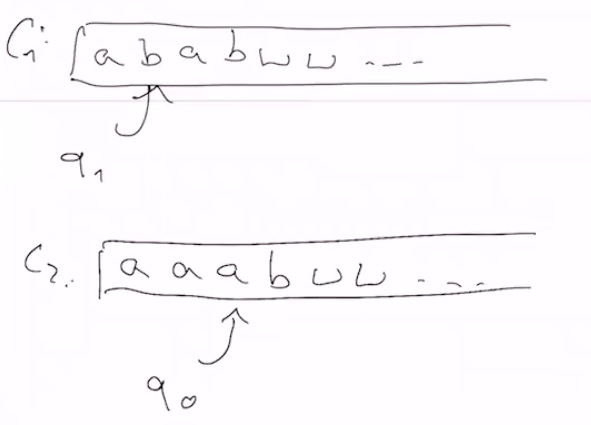 C₁: a b a b ⊔ ⊔ ---
q₁
C₂: a a a b ⊔ ⊔ ----
q₀